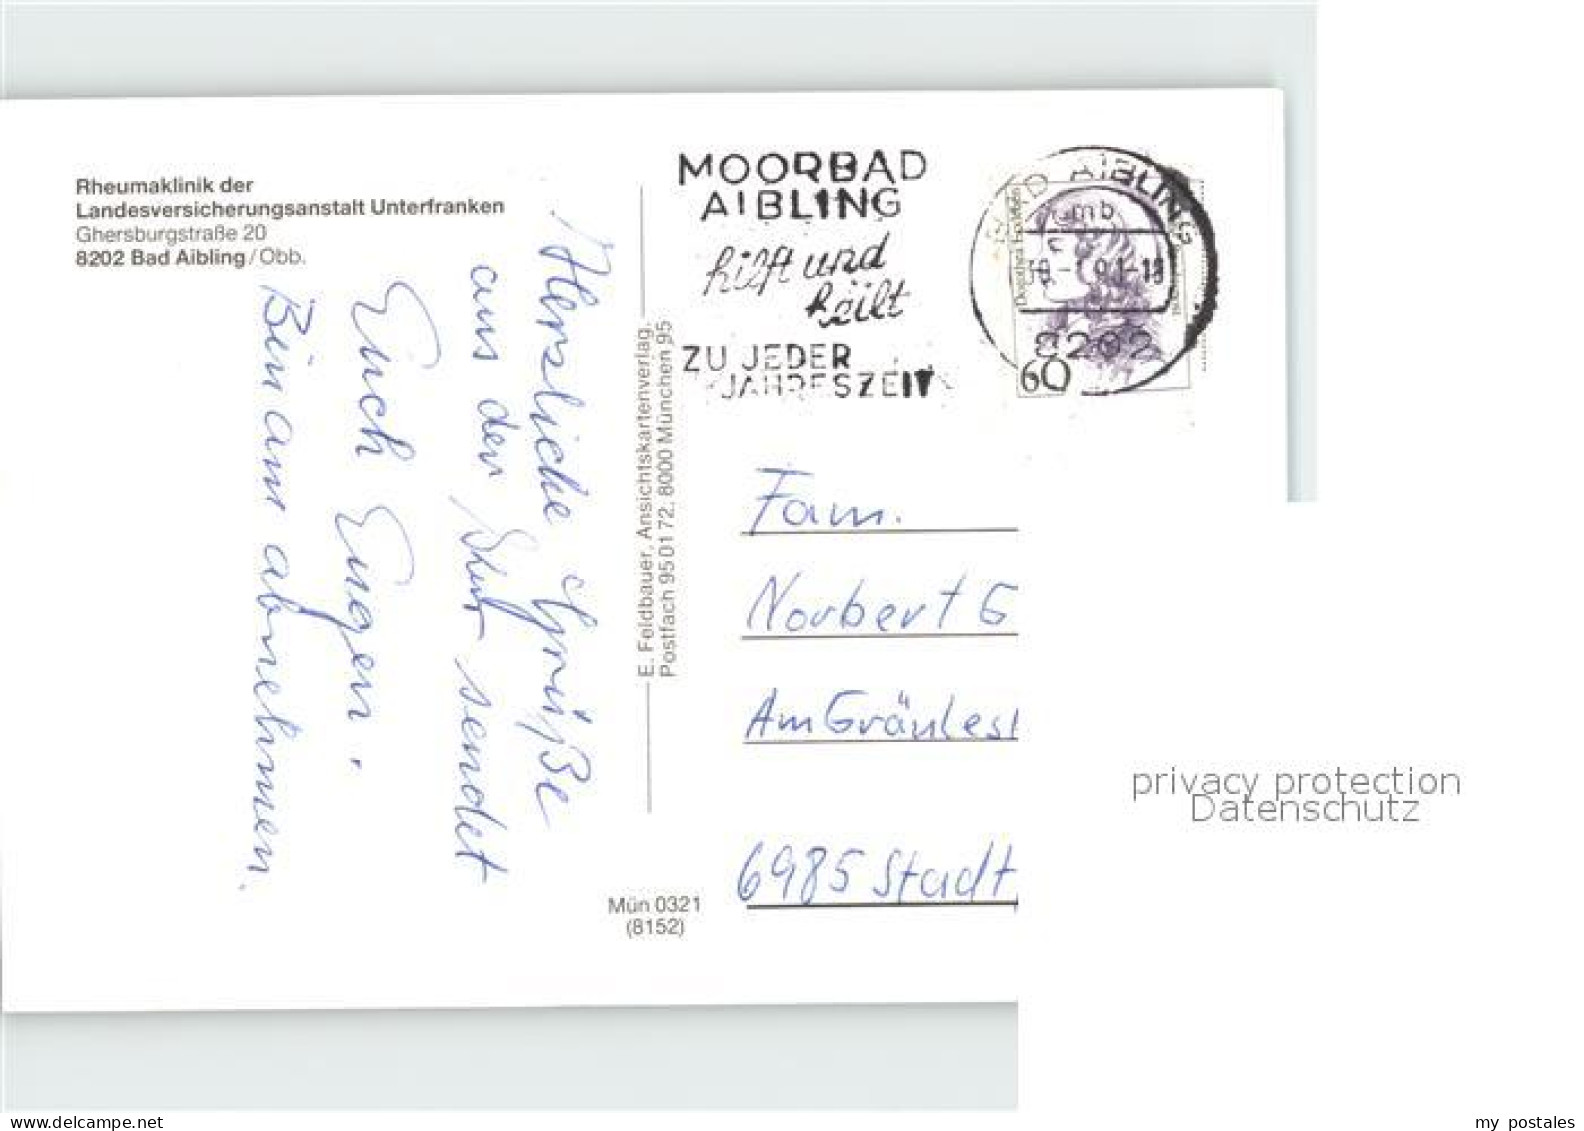 Rheumaklinik der
Landesversicherungsanstalt Unterfranken
Ghersburgstraße 20
8202 Bad Aibling/Obb.
Herzliche Grüße
aus der Kur sendet
Euch Eugen.
Bin am abnehmen.
E. Feldbauer, Ansichtskartenverlag,
Postfach 95 01 72, 8000 München 95
Mün 0321
(8152)
MOORBAD
AIBLING
hilft und
heilt
ZU JEDER
JAHRESZEIT
BAD AIBLING
8202
60
Fam.
Norbert G
Am Gräulest
6985 Stadt
privacy protection
Datenschutz
delcampe.net
my postales